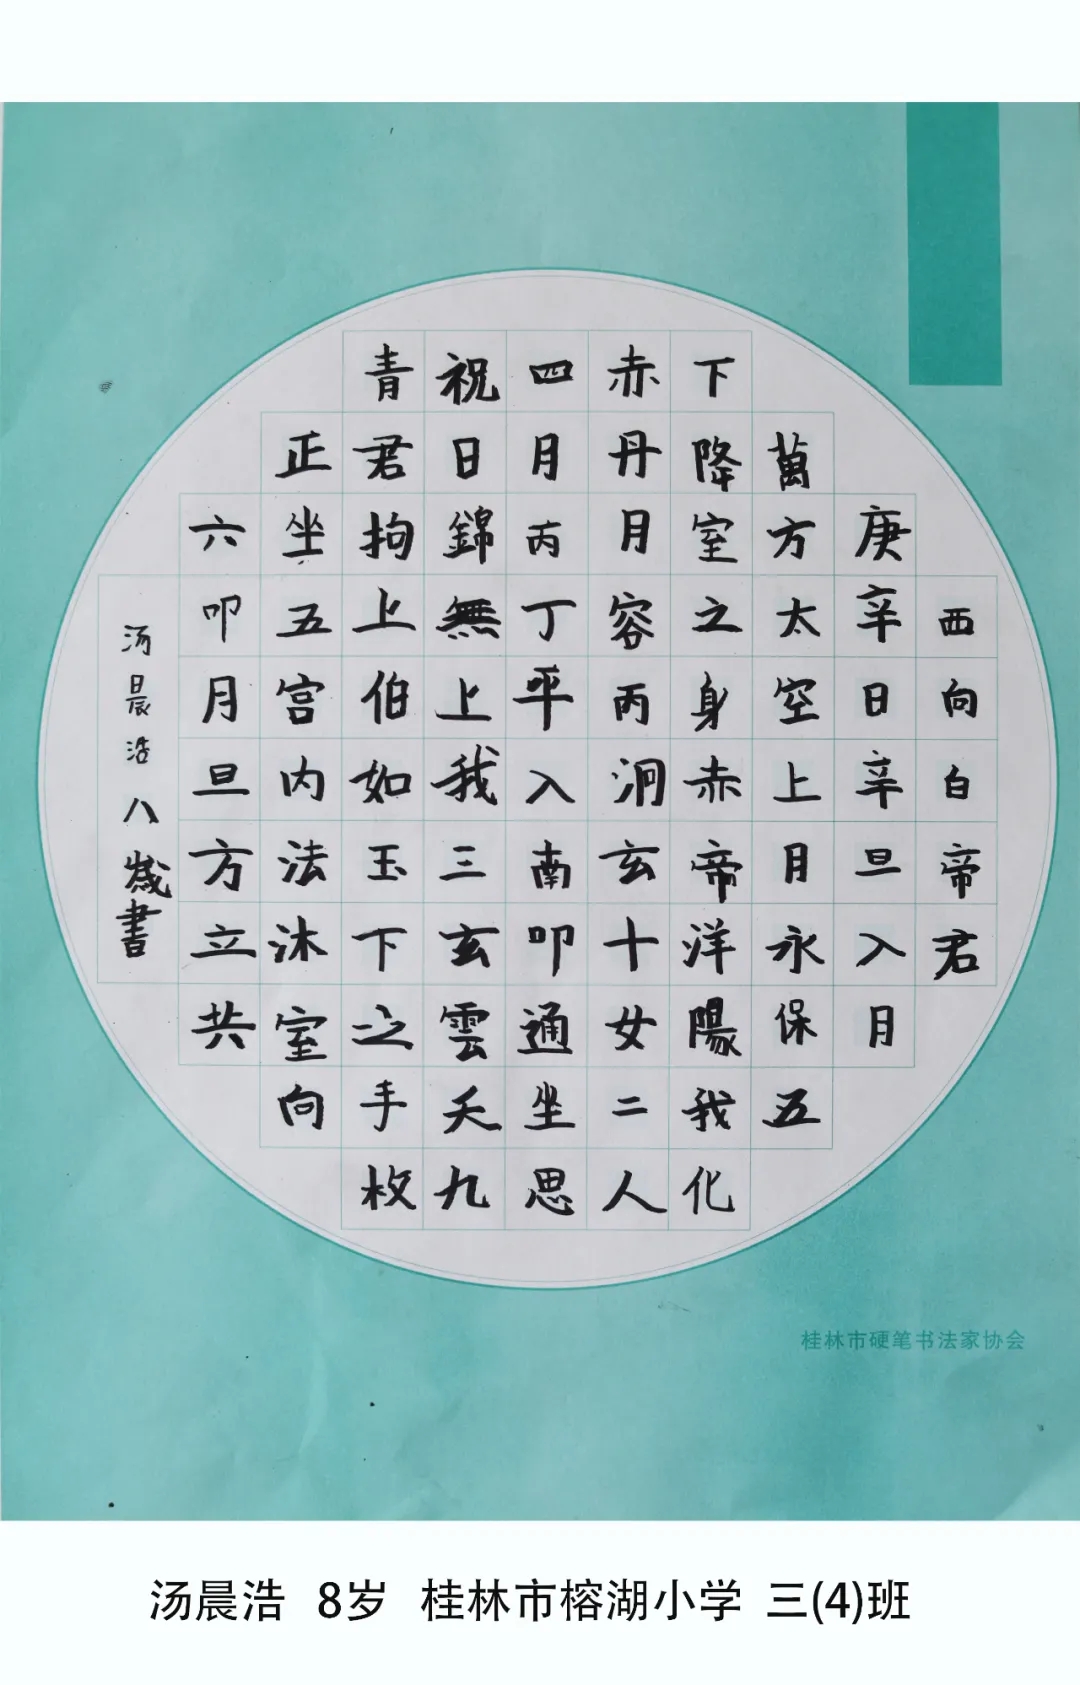 西向白帝君
庚辛日辛旦入月
萬方太空上月永保五
下降室之身赤帝洋陽我化
赤丹月容丙泂玄十女二人
四月丙丁平入南叩通坐思
祝日錦無上我三玄雲夭九
青君拘上伯如玉下之手枚
正坐五宫内法沐室向
六叩月旦方立共
汤晨浩八歲書
桂林市硬笔书法家协会
汤晨浩 8岁 桂林市榕湖小学 三(4)班